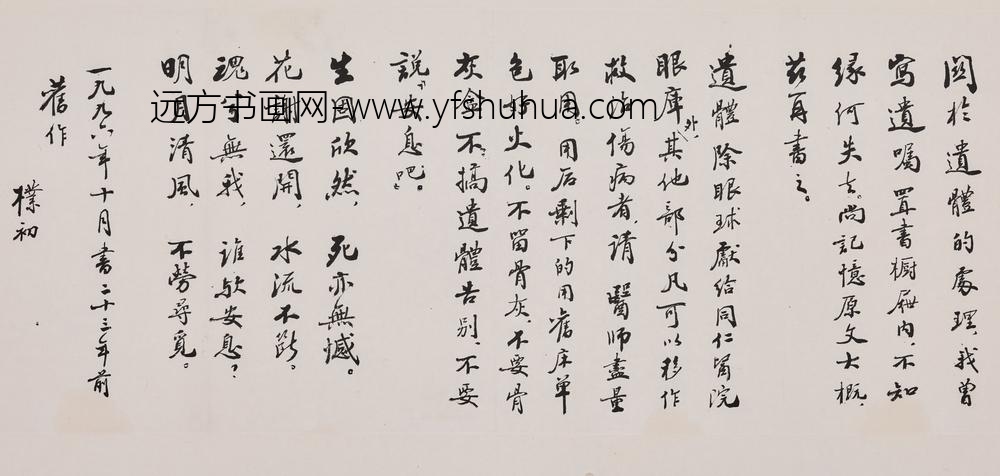 關於遺體的處理，我曾
寫遺囑置書櫥屜内，不知
緣何失去。尚記憶原文大概，
茲再書之。
遺體除眼球獻給同仁醫院
眼庫外，其他部分凡可以移作
救治傷病者，請醫師盡量
取用。用后剩下的用舊床單
包好火化。不留骨灰，不要骨
灰盒，不搞遺體告别，不要
說“安息吧”。
生固欣然，死亦無憾。
花落還開，水流不斷。
魂兮無我，誰歟安息？
明月清風，不勞尋覓。
一九九六年十月書二十三年前
舊作
樸初
远方书画网-www.yfshuhua.com/